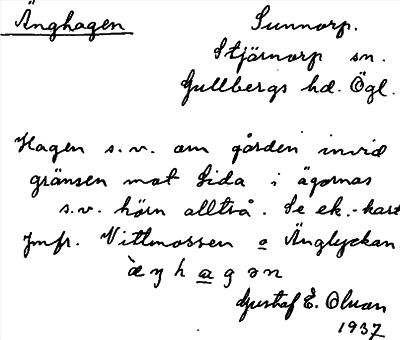 Änghagen Sunnorp.
Stjärnorp sn.
Gullbergs hd. Ögl.
Hagen s.v. om gården invid
gränsen mot Lida i ägornas
s.v. hörn alltså. Se ek.-kart
Jmfr. Vittmossen o Änglyckan.
Gustaf E. Olsson
1937